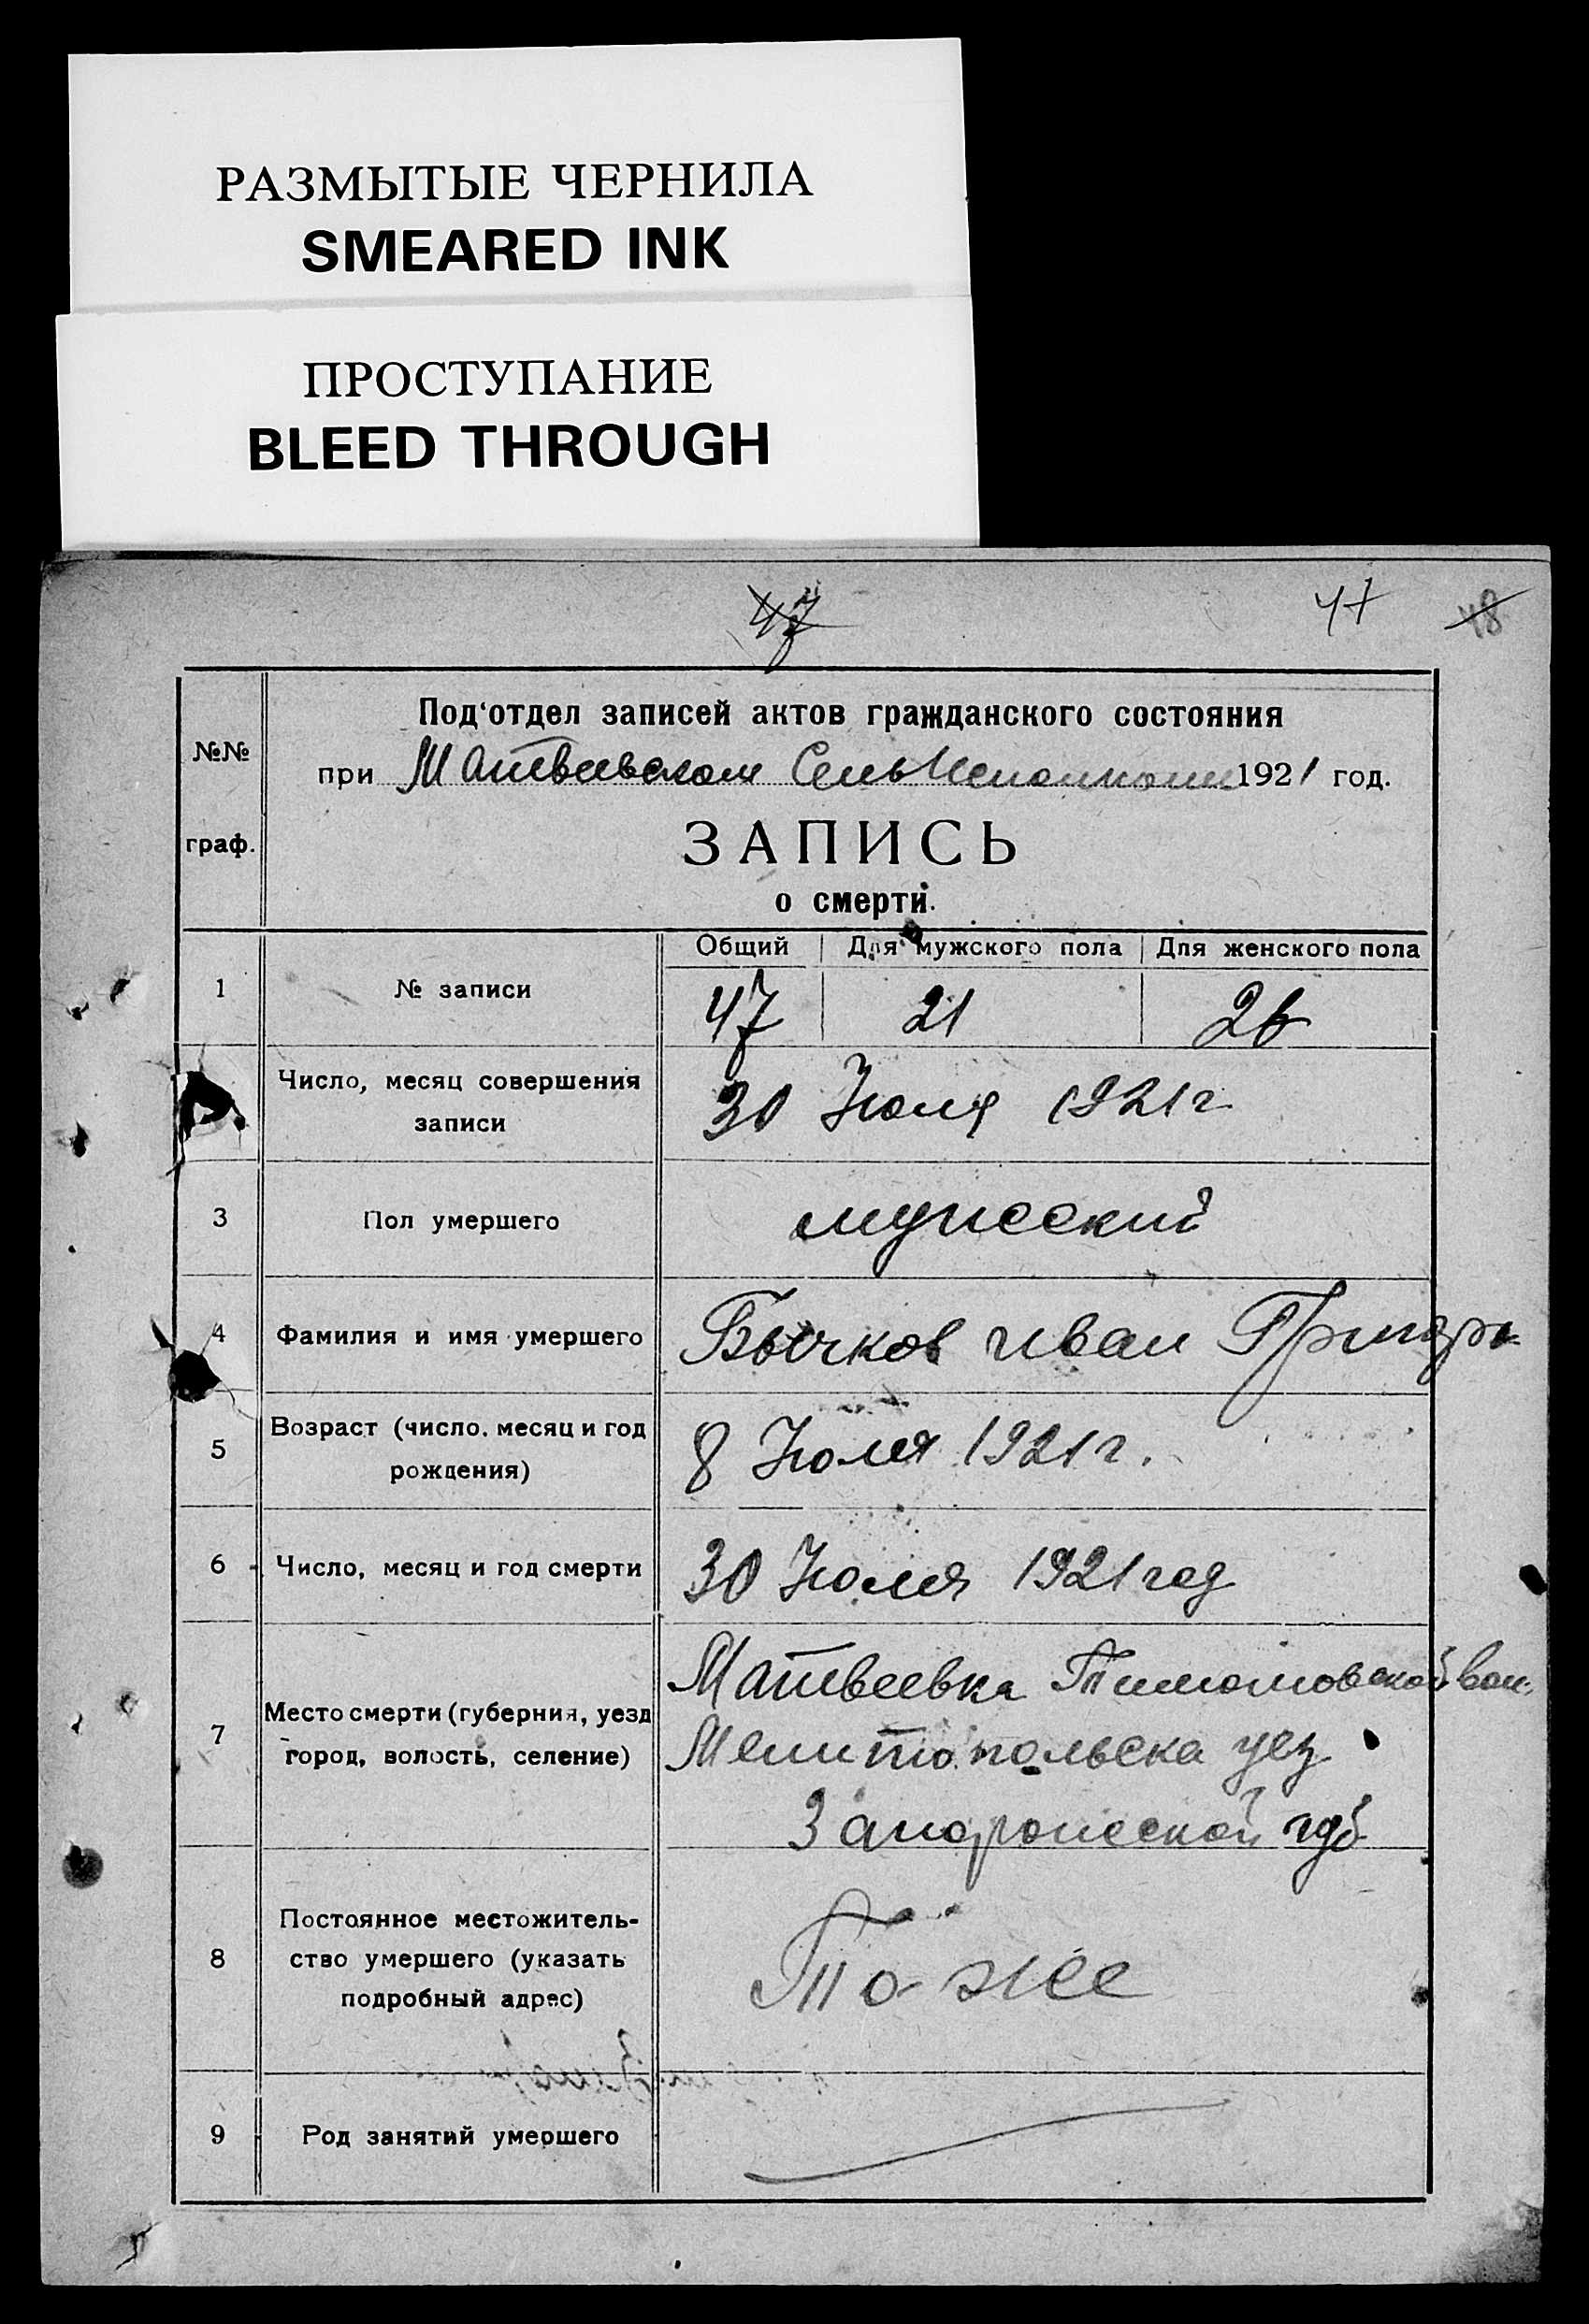 РАЗМЫТЫЕ ЧЕРНИЛА
SMEARED INK
ПРОСТУПАНИЕ
BLEED THROUGH
47 47 48
№№ граф.
Под‘отдел записей актов гражданского состояния
при Матвеевском СельИсполкоме 1921 год.
ЗАПИСЬ
о смерти.
Общий Для мужского пола Для женского пола
1 № записи 47 21 26
Число, месяц совершения записи 30 Июля 1921 г
3 Пол умершего мужеский
4 Фамилия и имя умершего Бычков Иван Григорь
5 Возраст (число, месяц и год рождения) 8 Июля 1921 г.
6 Число, месяц и год смерти 30 Июля 1921 год
7 Место смерти (губерния, уезд город, волость, селение) Матвеевка вол.
Мелитопольска уез
Запорожеской губ
8 Постоянное местожительство умершего (указать подробный адрес) То же
9 Род занятий умершего